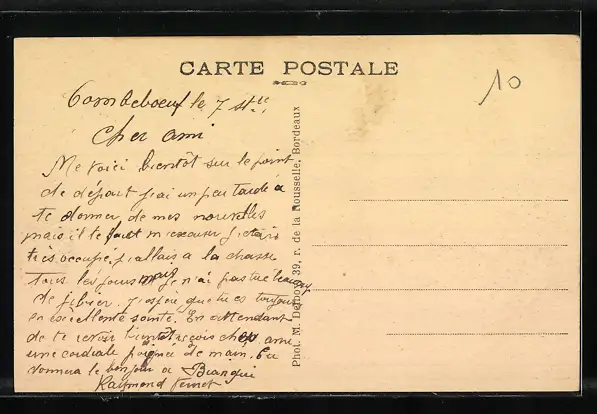 CARTE POSTALE
10
Tombeboeuf le 7 st
Cher ami
Me voici bientôt sur le point
de départ j'ai un peu tardé a
te donner de mes nouvelles
mais il le faut m'excuser j'étais
très occupé, j'allais a la chasse
tous les jours mais je n'ai pas tué beaucoup
de jibier. J'espère que tu es toujours
en excellente santé. En attendant
de te revoir bientôt reçois cher ami
une cordiale poignée de main. Tu
donnera le bonjour a
Raymond
Phot. M. Delboy, 39, r. de la Rousselle, Bordeaux